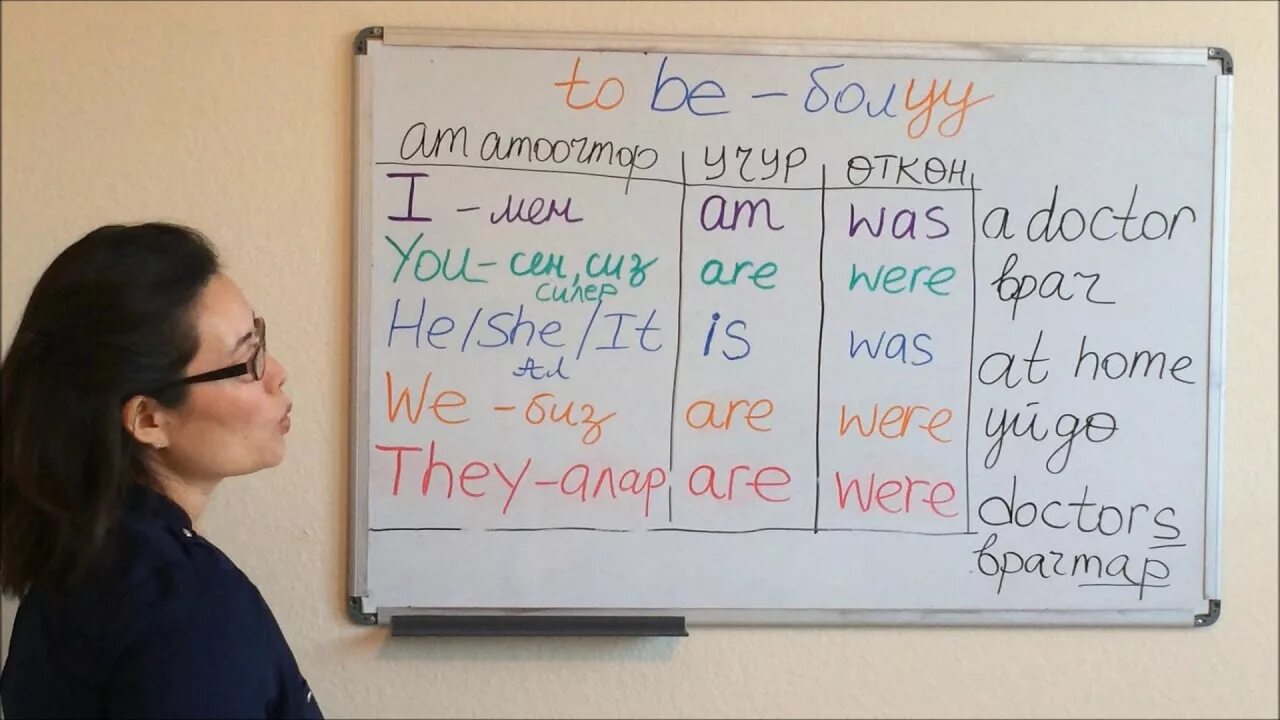 to be – болуу
ат атоочтор | учур | өткөн
I – мен am was
You – сен, сиз are were
силер
He/She/It is was
Ал
We – биз are were
They – алар are were
a doctor
врач
at home
үйдө
doctors
врачтар